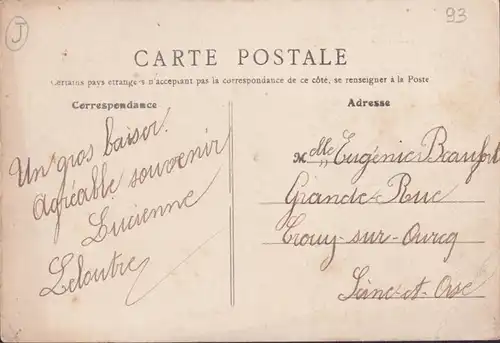 J
93
CARTE POSTALE
Certains pays étrangers n'acceptant pas la correspondance de ce côté, se renseigner à la Poste
Correspondance
Un gros baiser.
Agréable souvenir
Lucienne
Leloutre
Adresse
Melle Eugénie Beaufort
Grande-Rue
Crouy-sur-Ourcq
Seine-et-Oise